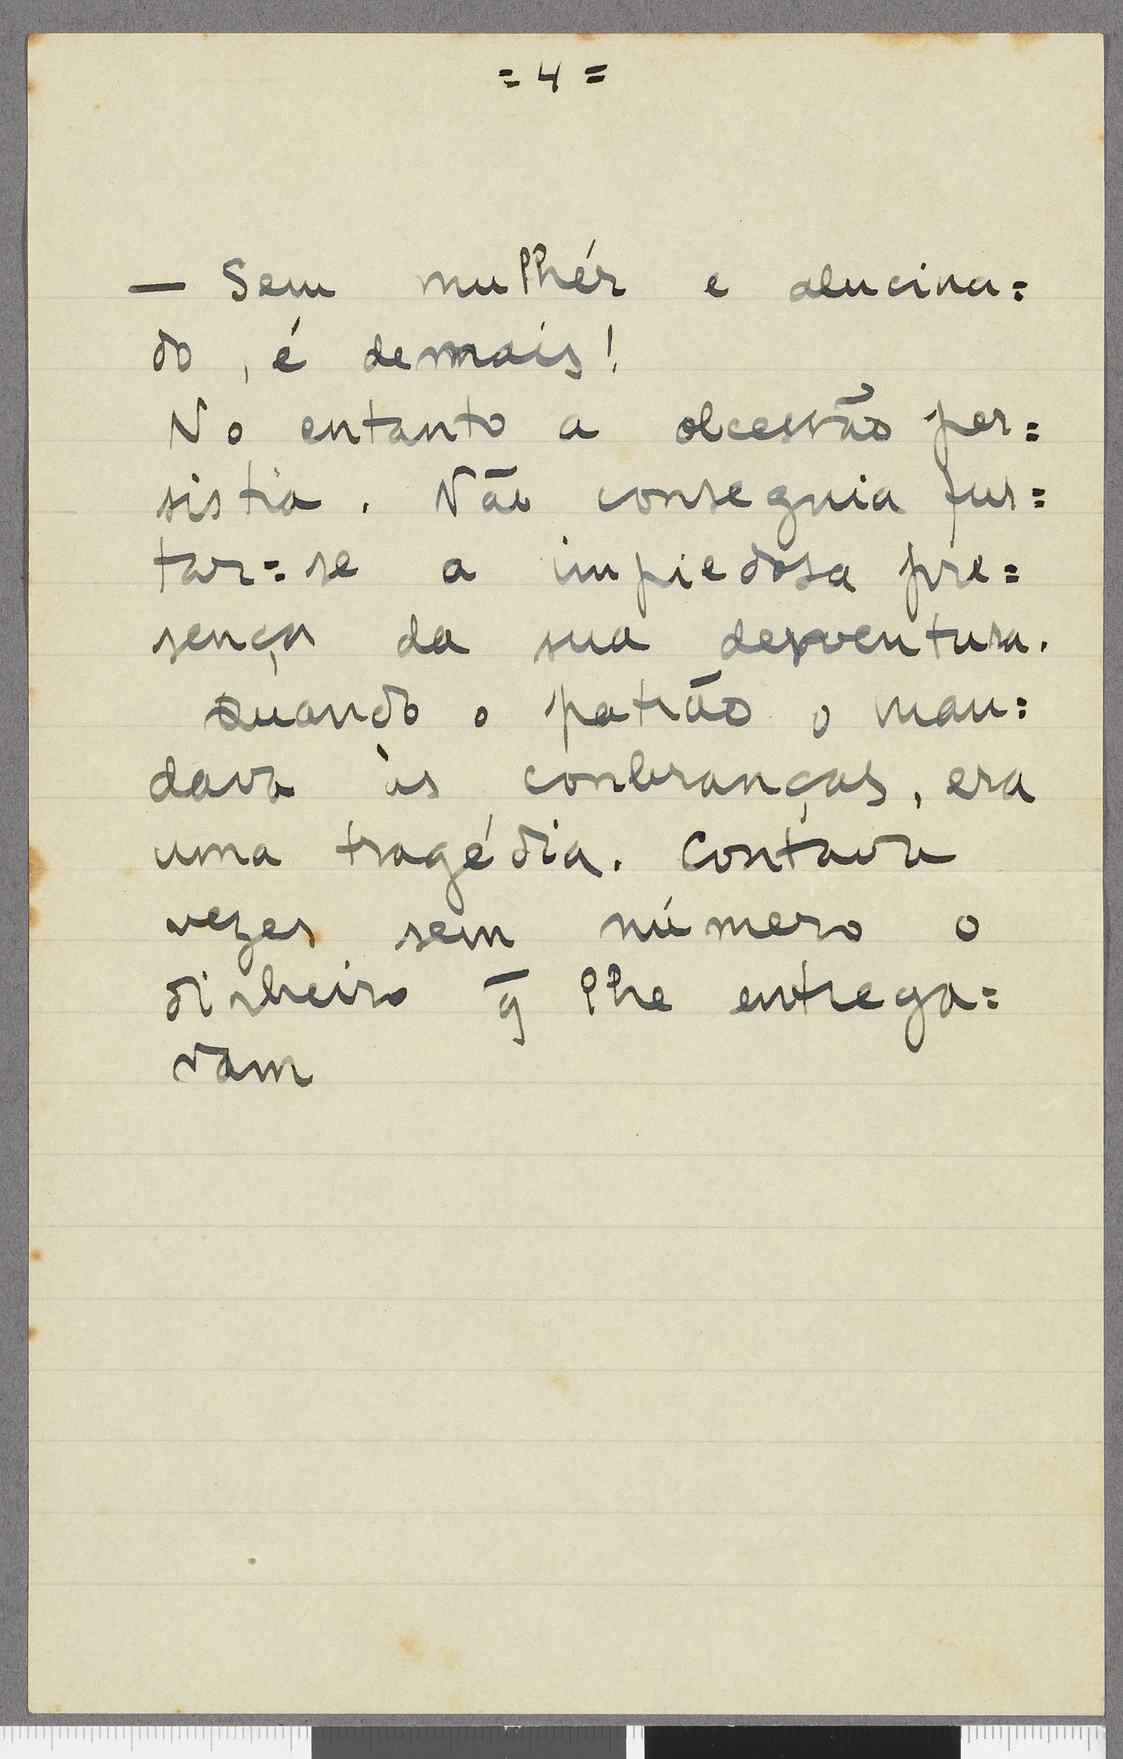 = 4 =
— Sem mulhér e alucina=
do, é demais!
No entanto a obcessão per=
sistia. Não conseguia fur=
tar=se a impiedosa pre=
sença da sua desventura.
Quando o patrão o man=
dava às conbranças, era
uma tragédia. Contava
vezes sem número o
dinheiro q̄ lhe entrega=
vam